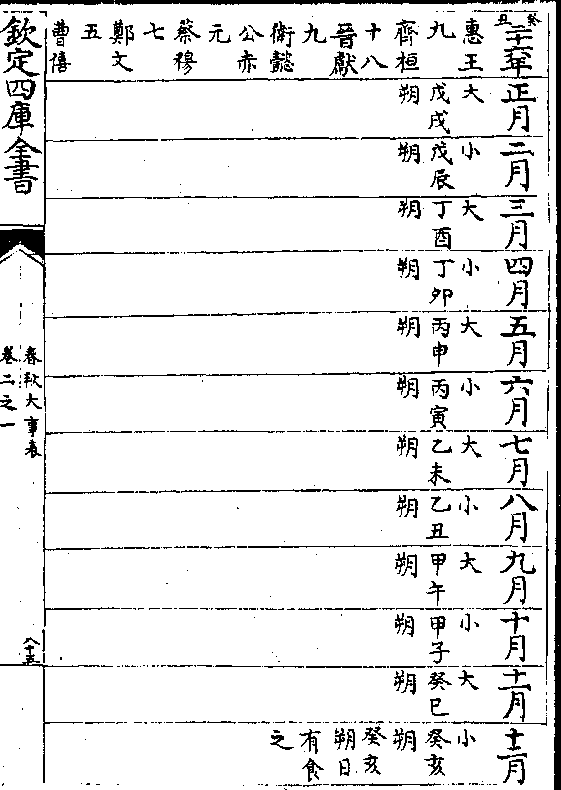 癸丑
二十六年
惠王
九
齊桓
十八
晉獻
九
衛懿
公赤
元
蔡穆
七
鄭文
五
曹僖
正月
大
戊戌
朔
二月
小
戊辰
朔
三月
大
丁酉
朔
四月
小
丁卯
朔
五月
大
丙申
朔
六月
小
丙寅
朔
七月
大
乙未
朔
八月
小
乙丑
朔
九月
大
甲午
朔
十月
小
甲子
朔
十一月
大
癸巳
朔
十二月
小
癸亥
朔
癸亥
朔日
有食
之
欽定四庫全書
春秋大事表
卷二之一
八十五